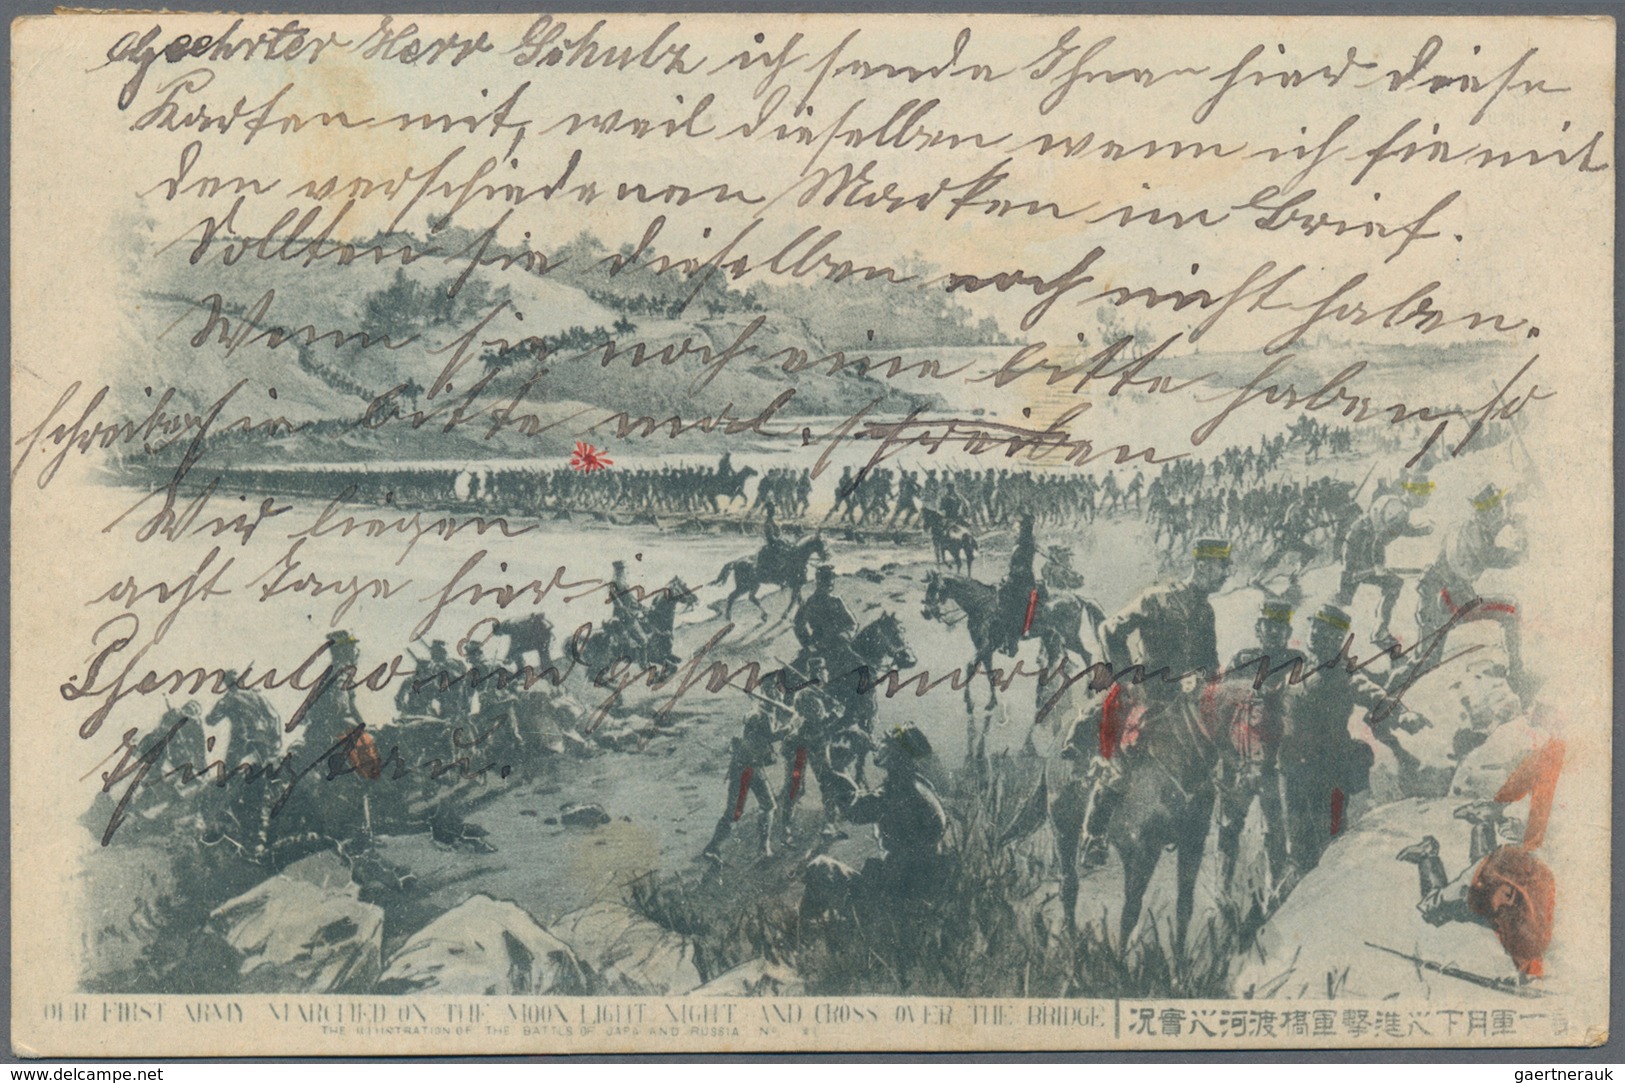 Geehrter Herr Schulz ich sende Ihnen hier diese
Karten mit, weil dieselben wenn ich sie mit
den verschiedenen Marken im Brief.
Sollten sie dieselben noch nicht haben.
Wenn sie noch eine bitte haben, so
schreiben sie bitte mal. schreiben
Wir liegen
acht Tage hier in
Chemulpo und gehen morgen nach
Tsingtau.
OUR FIRST ARMY MARCHED ON THE MOON LIGHT NIGHT AND CROSS OVER THE BRIDGE
況實㆟河渡橋軍擊進㆟下月軍一第
THE ILLUSTRATION OF THE BATTLS OF JAPA AND RUSSIA No
delcampe.net
gaertnerauk